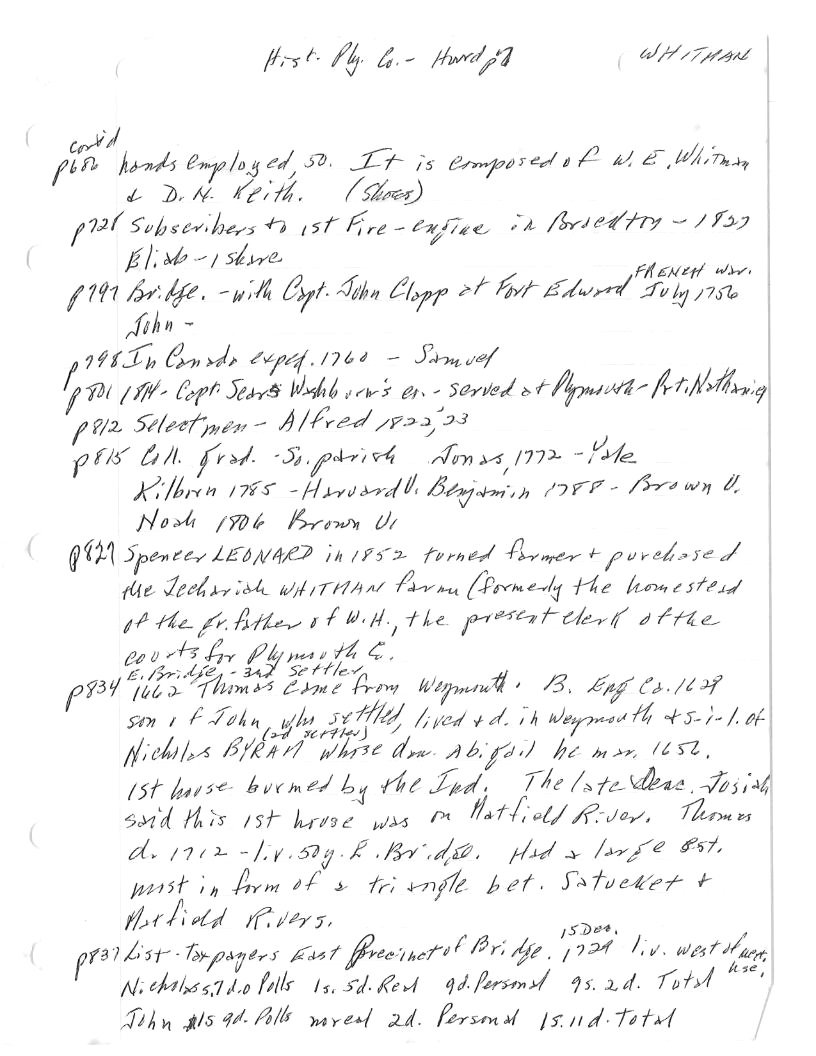 Hist. Ply. Co. - Hurd p7 WHITMAN
cont'd
p686 hands employed, 50. It is composed of W. E. Whitman
& D. N. Keith. (Shoes)
p728 Subscribers to 1st Fire-engine in Brockton - 1827
Eliab - 1 share
FRENCH War.
p797 Bridge. - with Capt. John Clapp at Fort Edward July 1756
John -
p798 In Canada exped. 1760 - Samuel
p801 1814 - Capt. Sears Washburn's co. - served at Plymouth - Prt. Nathaniel
p812 Selectmen - Alfred 1822, '23
p815 Coll. grad. - So. parish Jonas, 1772 - Yale
Kilborn 1785 - Harvard U. Benjamin 1788 - Brown U.
Noah 1806 Brown U.
p827 Spencer LEONARD in 1852 turned farmer & purchased
the Zechariah WHITMAN farm (formerly the homestead
of the gr. father of W. H., the present clerk of the
courts for Plymouth C.
E. Bridge - 3rd settler
p834 1662 Thomas came from Weymouth. B. Eng Ca. 1629
son of John, who settled, lived & d. in Weymouth & s-i-l. of
(2d settler)
Nicholas BYRAM whose dau. Abigail he mar. 1656.
1st house burned by the Ind. The late Deac. Josiah
said this 1st house was on Matfield River. Thomas
d. 1712 - liv. 50y. E. Bridge. Had a large est.
most in form of a triangle bet. Satucket &
Matfield Rivers.
15 Dec.
p837 List - Taxpayers East Precinct of Bridge. 1729 liv. west of meet.
hse.
Nicholas 5, 7d. 0 Polls 1s. 5d. Real 9d. Personal 9s. 2d. Total
John 1s 9d. Polls no real 2d. Personal 1s. 11d. Total